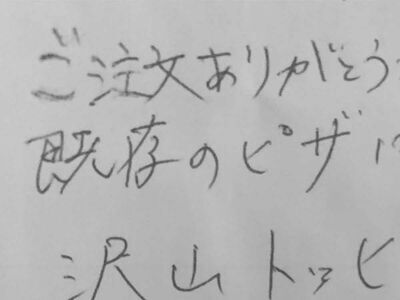 ご注文ありがとう
既存のピザ
沢山トッピ